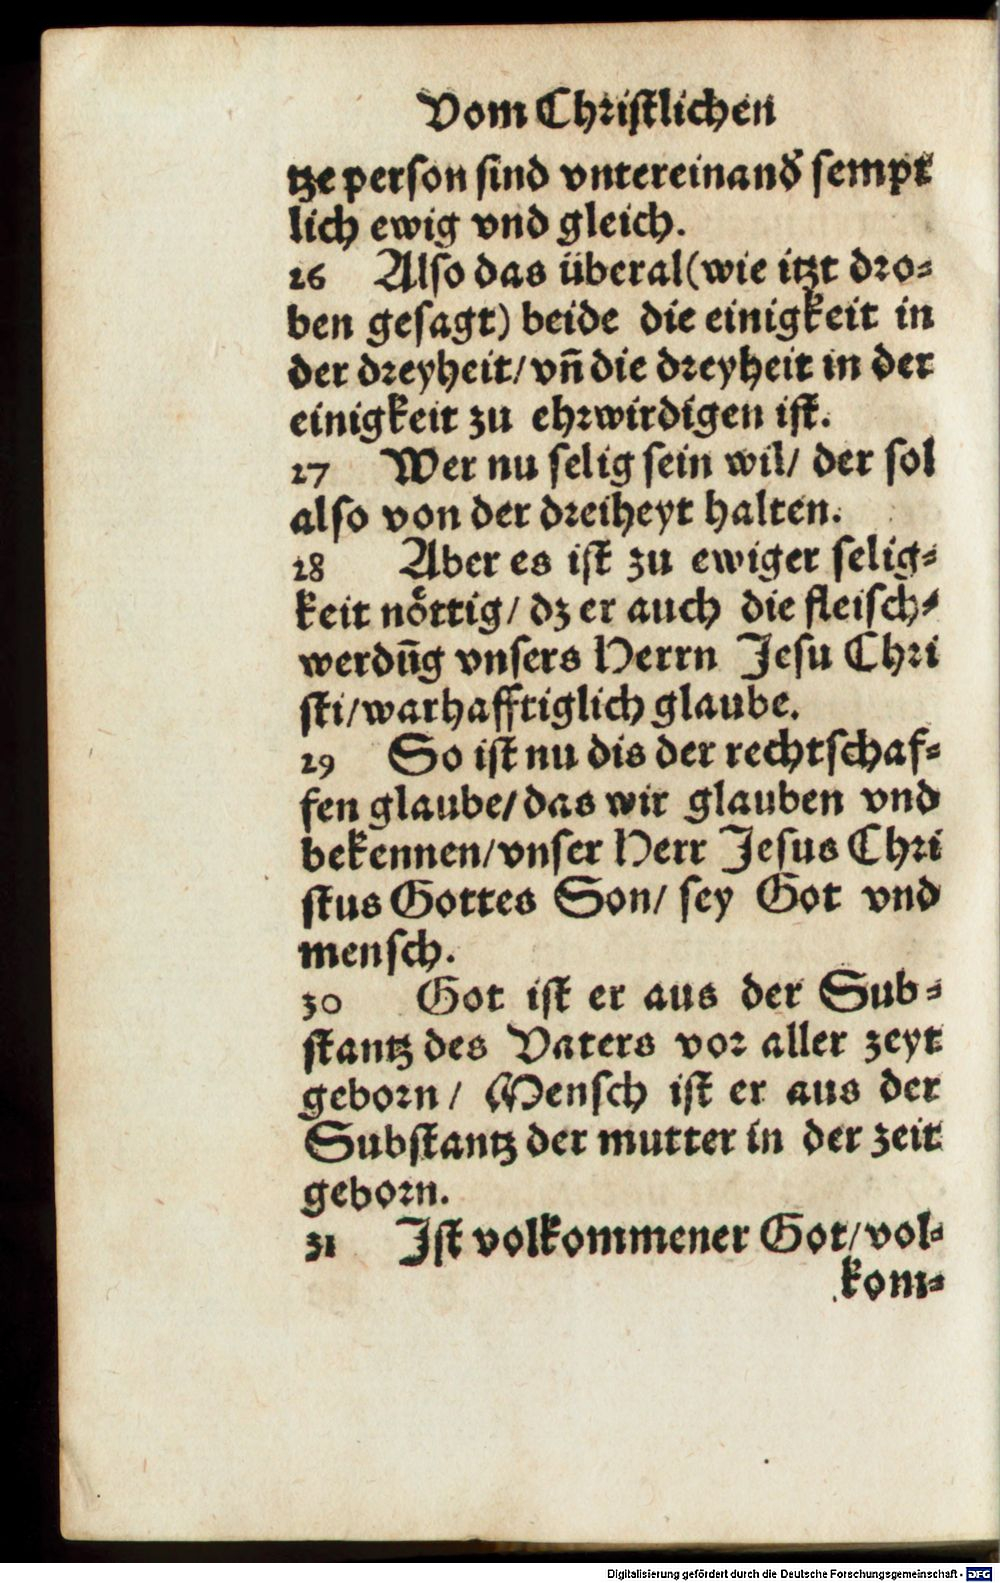 Vom Christlichen
tze person sind vntereinand&#x0306; sempt
lich ewig vnd gleich.
26 Also das überal(wie itzt dro⸗
ben gesagt) beide die einigkeit in
der dreyheit/ vn̄ die dreyheit in der
einigkeit zu ehrwirdigen ist.
27 Wer nu selig sein wil/ der sol
also von der dreiheyt halten.
28 Aber es ist zu ewiger selig⸗
keit nöttig/ dz er auch die fleisch⸗
werdūg vnsers Herrn Jesu Chri
sti/warhafftiglich glaube.
29 So ist nu dis der rechtschaf⸗
fen glaube/das wir glauben vnd
bekennen/vnser Herr Jesus Chri
stus Gottes Son/ sey Got vnd
mensch.
30 Got ist er aus der Sub⸗
stantz des Vaters vor aller zeyt
geborn/ Mensch ist er aus der
Substantz der mutter in der zeit
geborn.
31 Ist volkommener Got/vol⸗
kom⸗
Digitalisierung gefördert durch die Deutsche Forschungsgemeinschaft - DFG